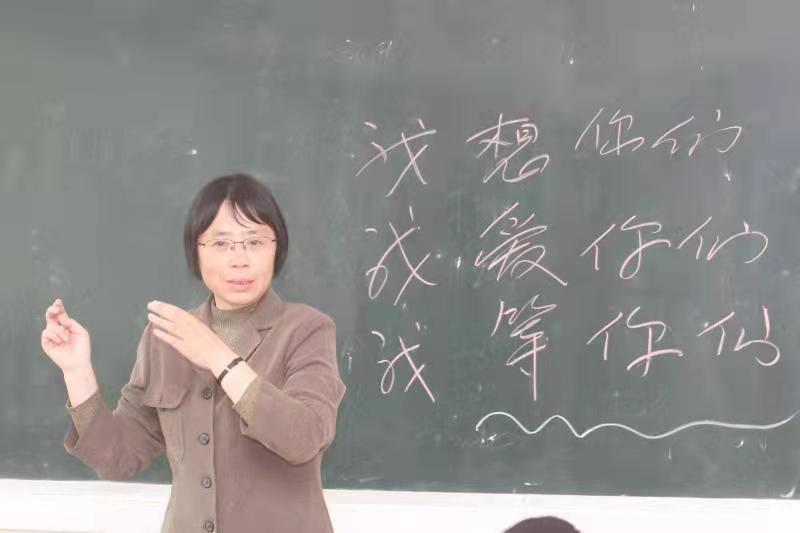 我想你们
我爱你们
我等你们